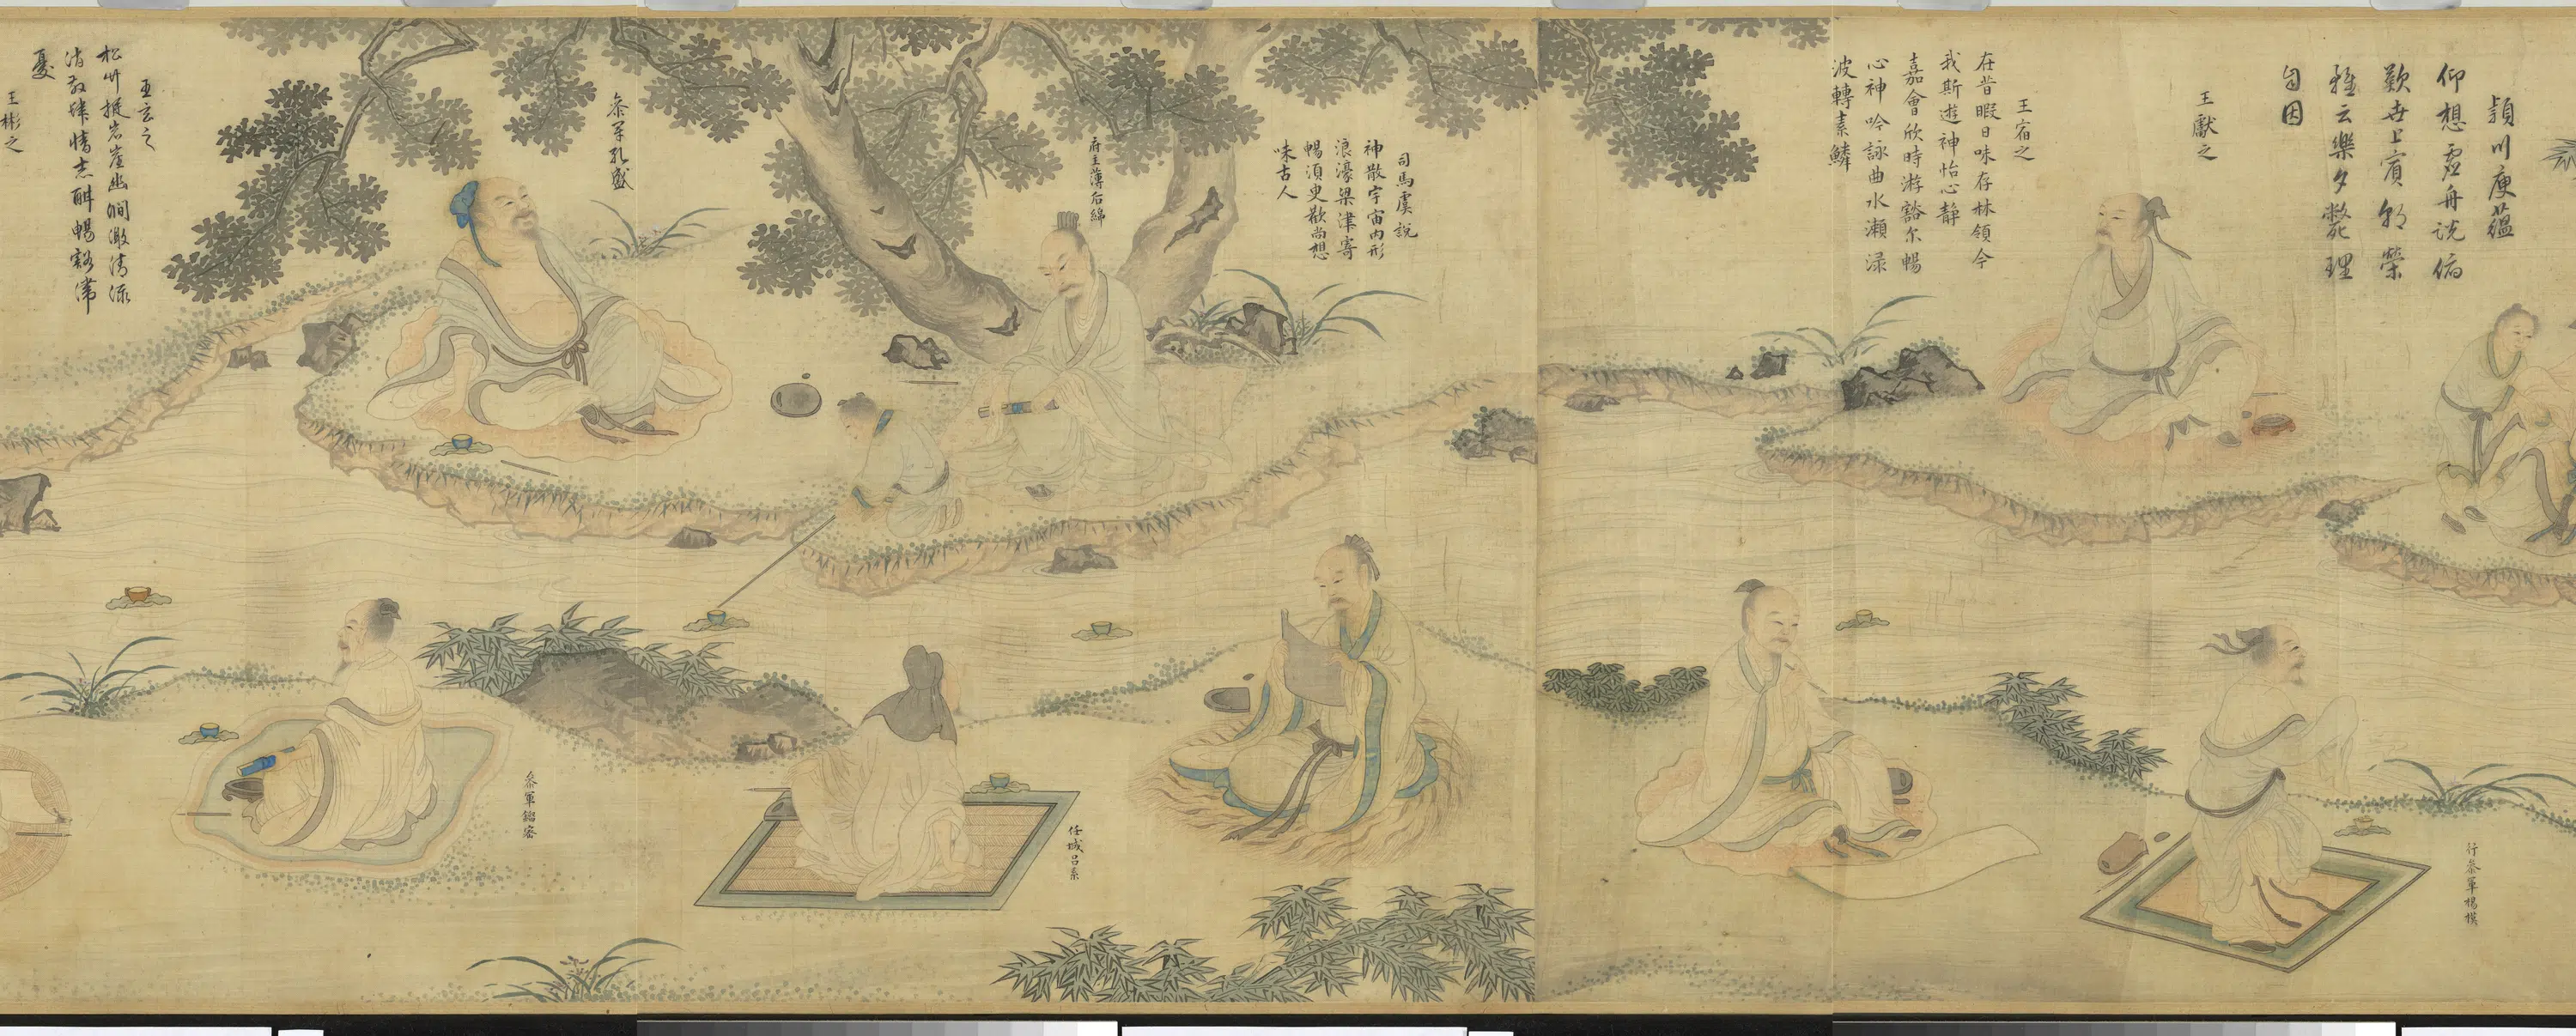 潁川庾蘊
仰想虛舟說俯
歎世上賓朝榮
雖云樂夕斃理
自因
王獻之
王宿之
在昔暇日味存林領今
我斯遊神怡心靜
嘉會欣時游豁尔暢
心神吟詠曲水瀨渌
波轉素鱗
司馬虞說
神散宇宙內形
浪濠梁津寄
暢須臾歡尚想
味古人
府主薄后綿
參軍孔盛
王玄之
松竹挺岩崖幽澗激清流
消散肆情志酣暢豁滯
憂
王彬之
行參軍楊模
任城呂系
參軍劉密